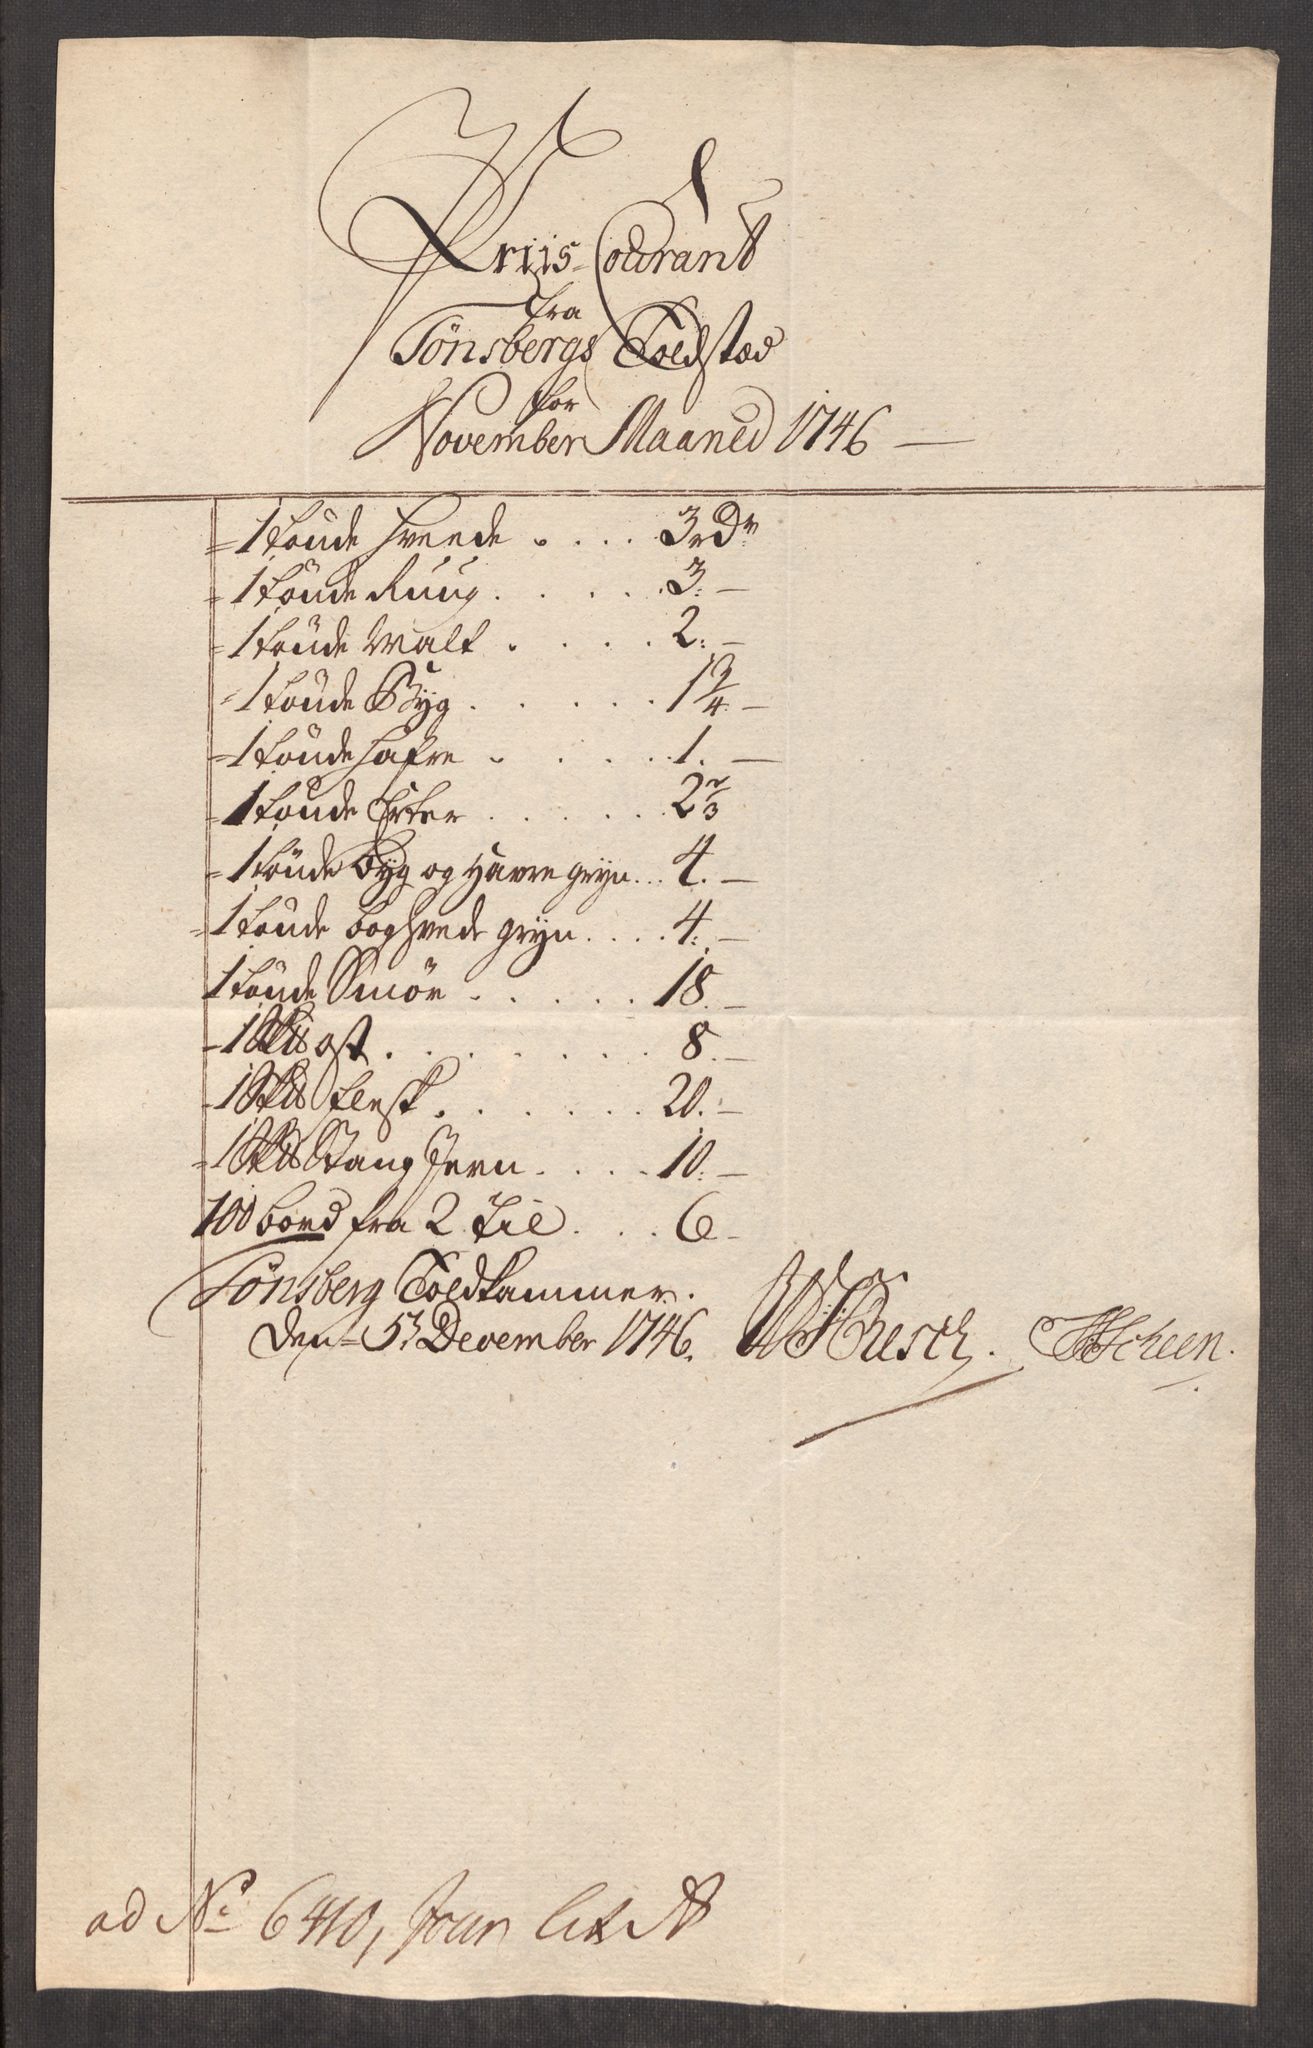 Priis-Courant
fra
Tönsbergs Toldstæd
for
November Maaned 1746 —
= 1 tönde Hveede . . . . 3 rdr
= 1 tönde Ruug . . . . . 3. —
= 1 tönde Malt . . . . 2: —
= 1 tönde Byg . . . . . 1 3/4. —
= 1 tönde Hafre . . . . . 1. —
1 tönde Erter . . . . . . 2 2/3
= 1 tönde Byg og Havre gryn . . . 4. —
= 1 tönde boghvede gryn . . . . 4: —
1 tönde Smör . . . . . . 18. —
- 1 Sk℔ ost . . . . . . . . 8. —
- 1 Sk℔ flesk . . . . . . 20. —
= 1 Sk℔ Stang Jern . . . . 10: —
100 bord fra 2 til . . . 6 -
Tönsberg Toldkammer.
den 5t December 1746. Resch. Scheen.
ad No 6410, Jour lit A